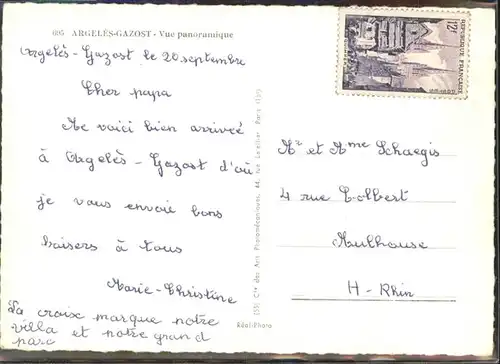 605 ARGELÈS-GAZOST - Vue panoramique
Argelès-Gazost le 20 septembre
Cher papa
Me voici bien arrivée
à Argelès-Gazost d'où
je vous envoie bons
baisers à tous
Marie-Christine
La croix marque notre
villa et notre grand
parc
Réal-Photo
Cie des Arts Photomécaniques, 44, rue Letellier Paris
12F
REPUBLIQUE FRANÇAISE
QUIMPER
Mr et Mme Schaegis
4 rue Colbert
Mulhouse
H-Rhin